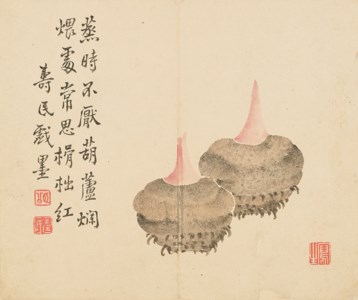 蒸時不厭葫蘆爛
煨處常思榾柮红
壽民戲墨